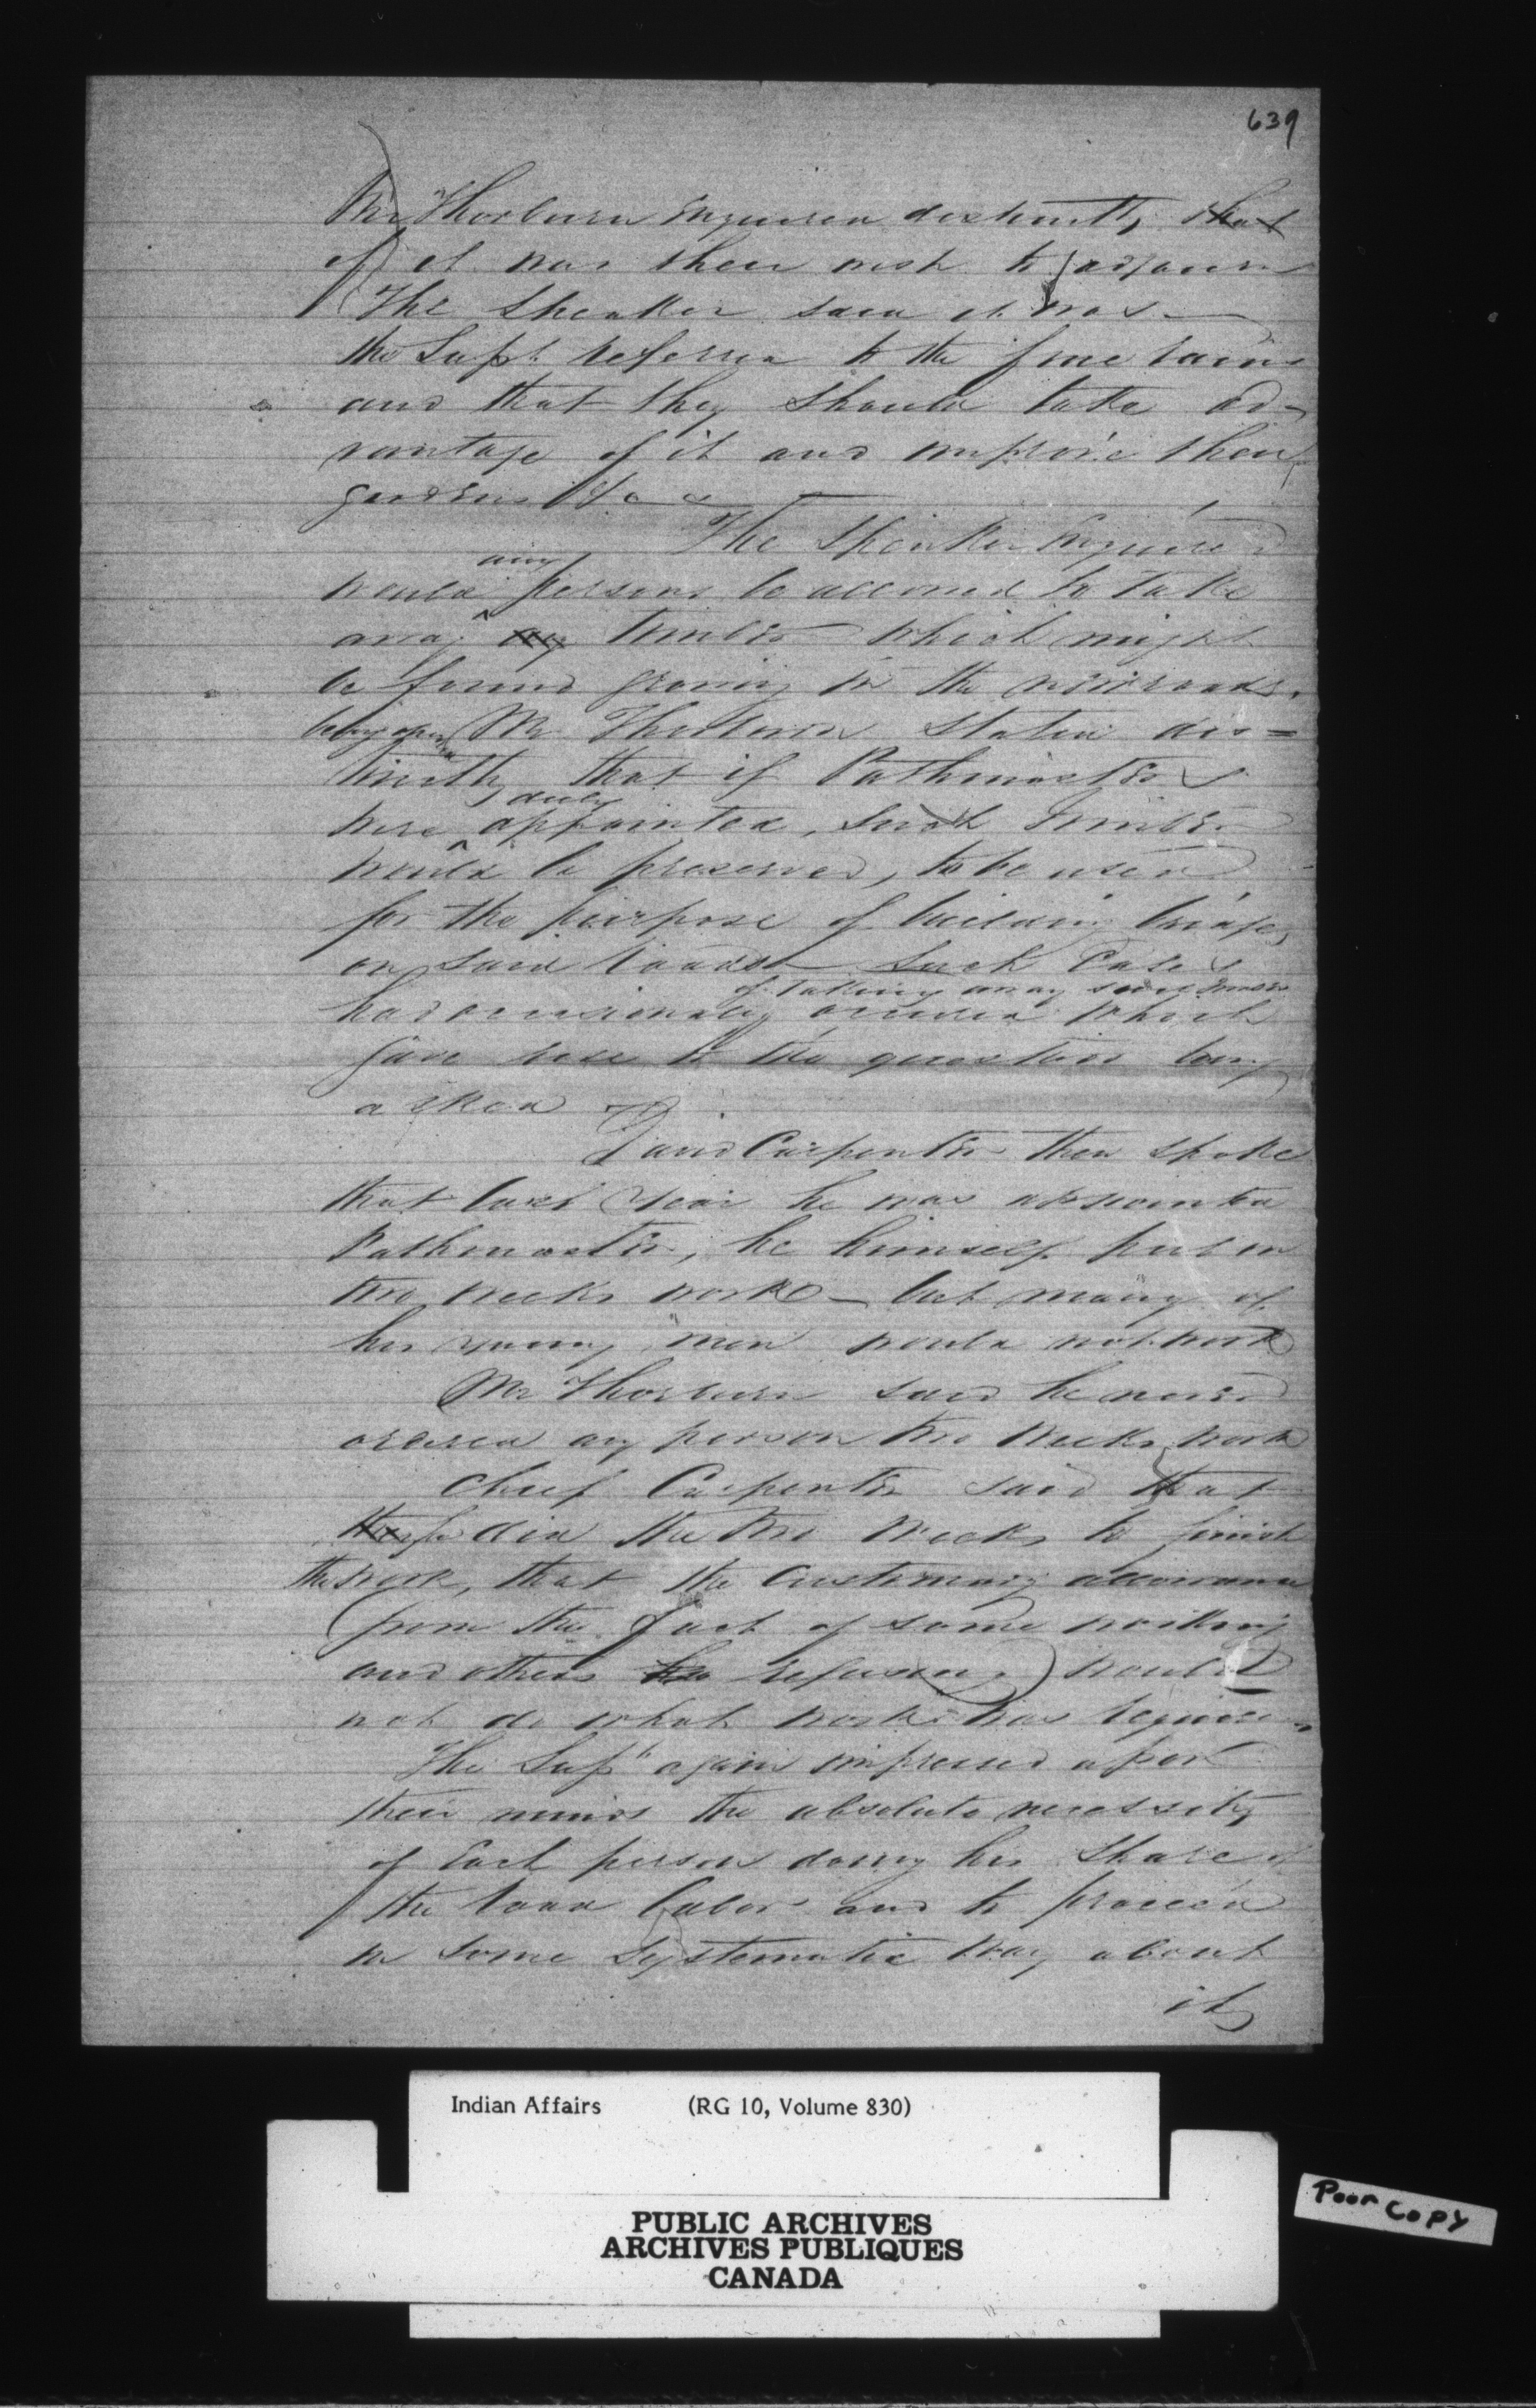 639
Mr Thorburn enquired distinctly that
if it was their wish to adjourn
The Speaker said it was —
the Supt. referred to the fine rains
and that they should take ad-
vantage of it and improve their
gardens &c
The Speaker enquired
any
would persons be allowed to take
away any timber which might
be found growing in the new roads.
being opened Mr Thorburn stated dis=
tinctly that if Pathmasters
duly
were appointed, such timber
would be preserved, to be used
for the purpose of building bridges
on said roads — Such Cases
of taking away said timber
had occasionally occurred which
gave rise to the question being
asked
David Carpenter then spoke
that last year he was appointed
Pathmaster, he himself put in
two weeks work — but many of
his young men would not work
Mr Thorburn said he never
ordered any person two weeks work
Chief Carpenter said that
he did the two weeks to finish
the work, that the customary allowance
from the fact of some working
and others refusing) would
not do what work was required
The Supt again impressed upon
their minds the absolute necessity
of each person doing his share of
the road labor and to proceed
in some systematic way about
it
Indian Affairs (RG 10, Volume 830)
PUBLIC ARCHIVES
ARCHIVES PUBLIQUES
CANADA
Poor Copy